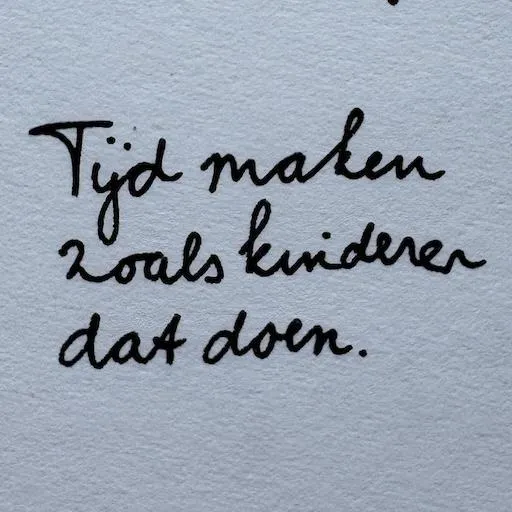 Tijd maken
zoals kinderen
dat doen.